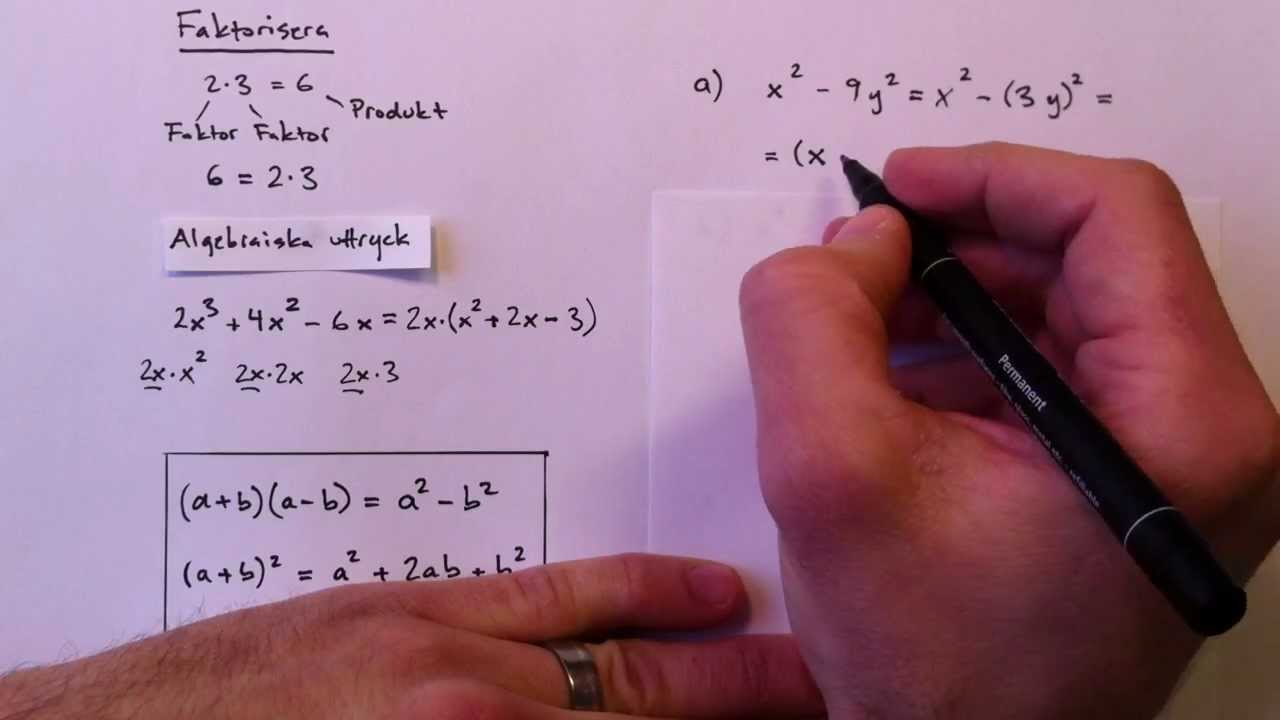 Faktorisera
2·3 = 6
Produkt
Faktor Faktor
6 = 2·3
Algebraiska uttryck
2x³ + 4x² - 6x = 2x·(x² + 2x - 3)
2x·x² 2x·2x 2x·3
(a+b)(a-b) = a² - b²
(a+b)² = a² + 2ab + b²
a) x² - 9y² = x² - (3y)² =
= (x
Permanent